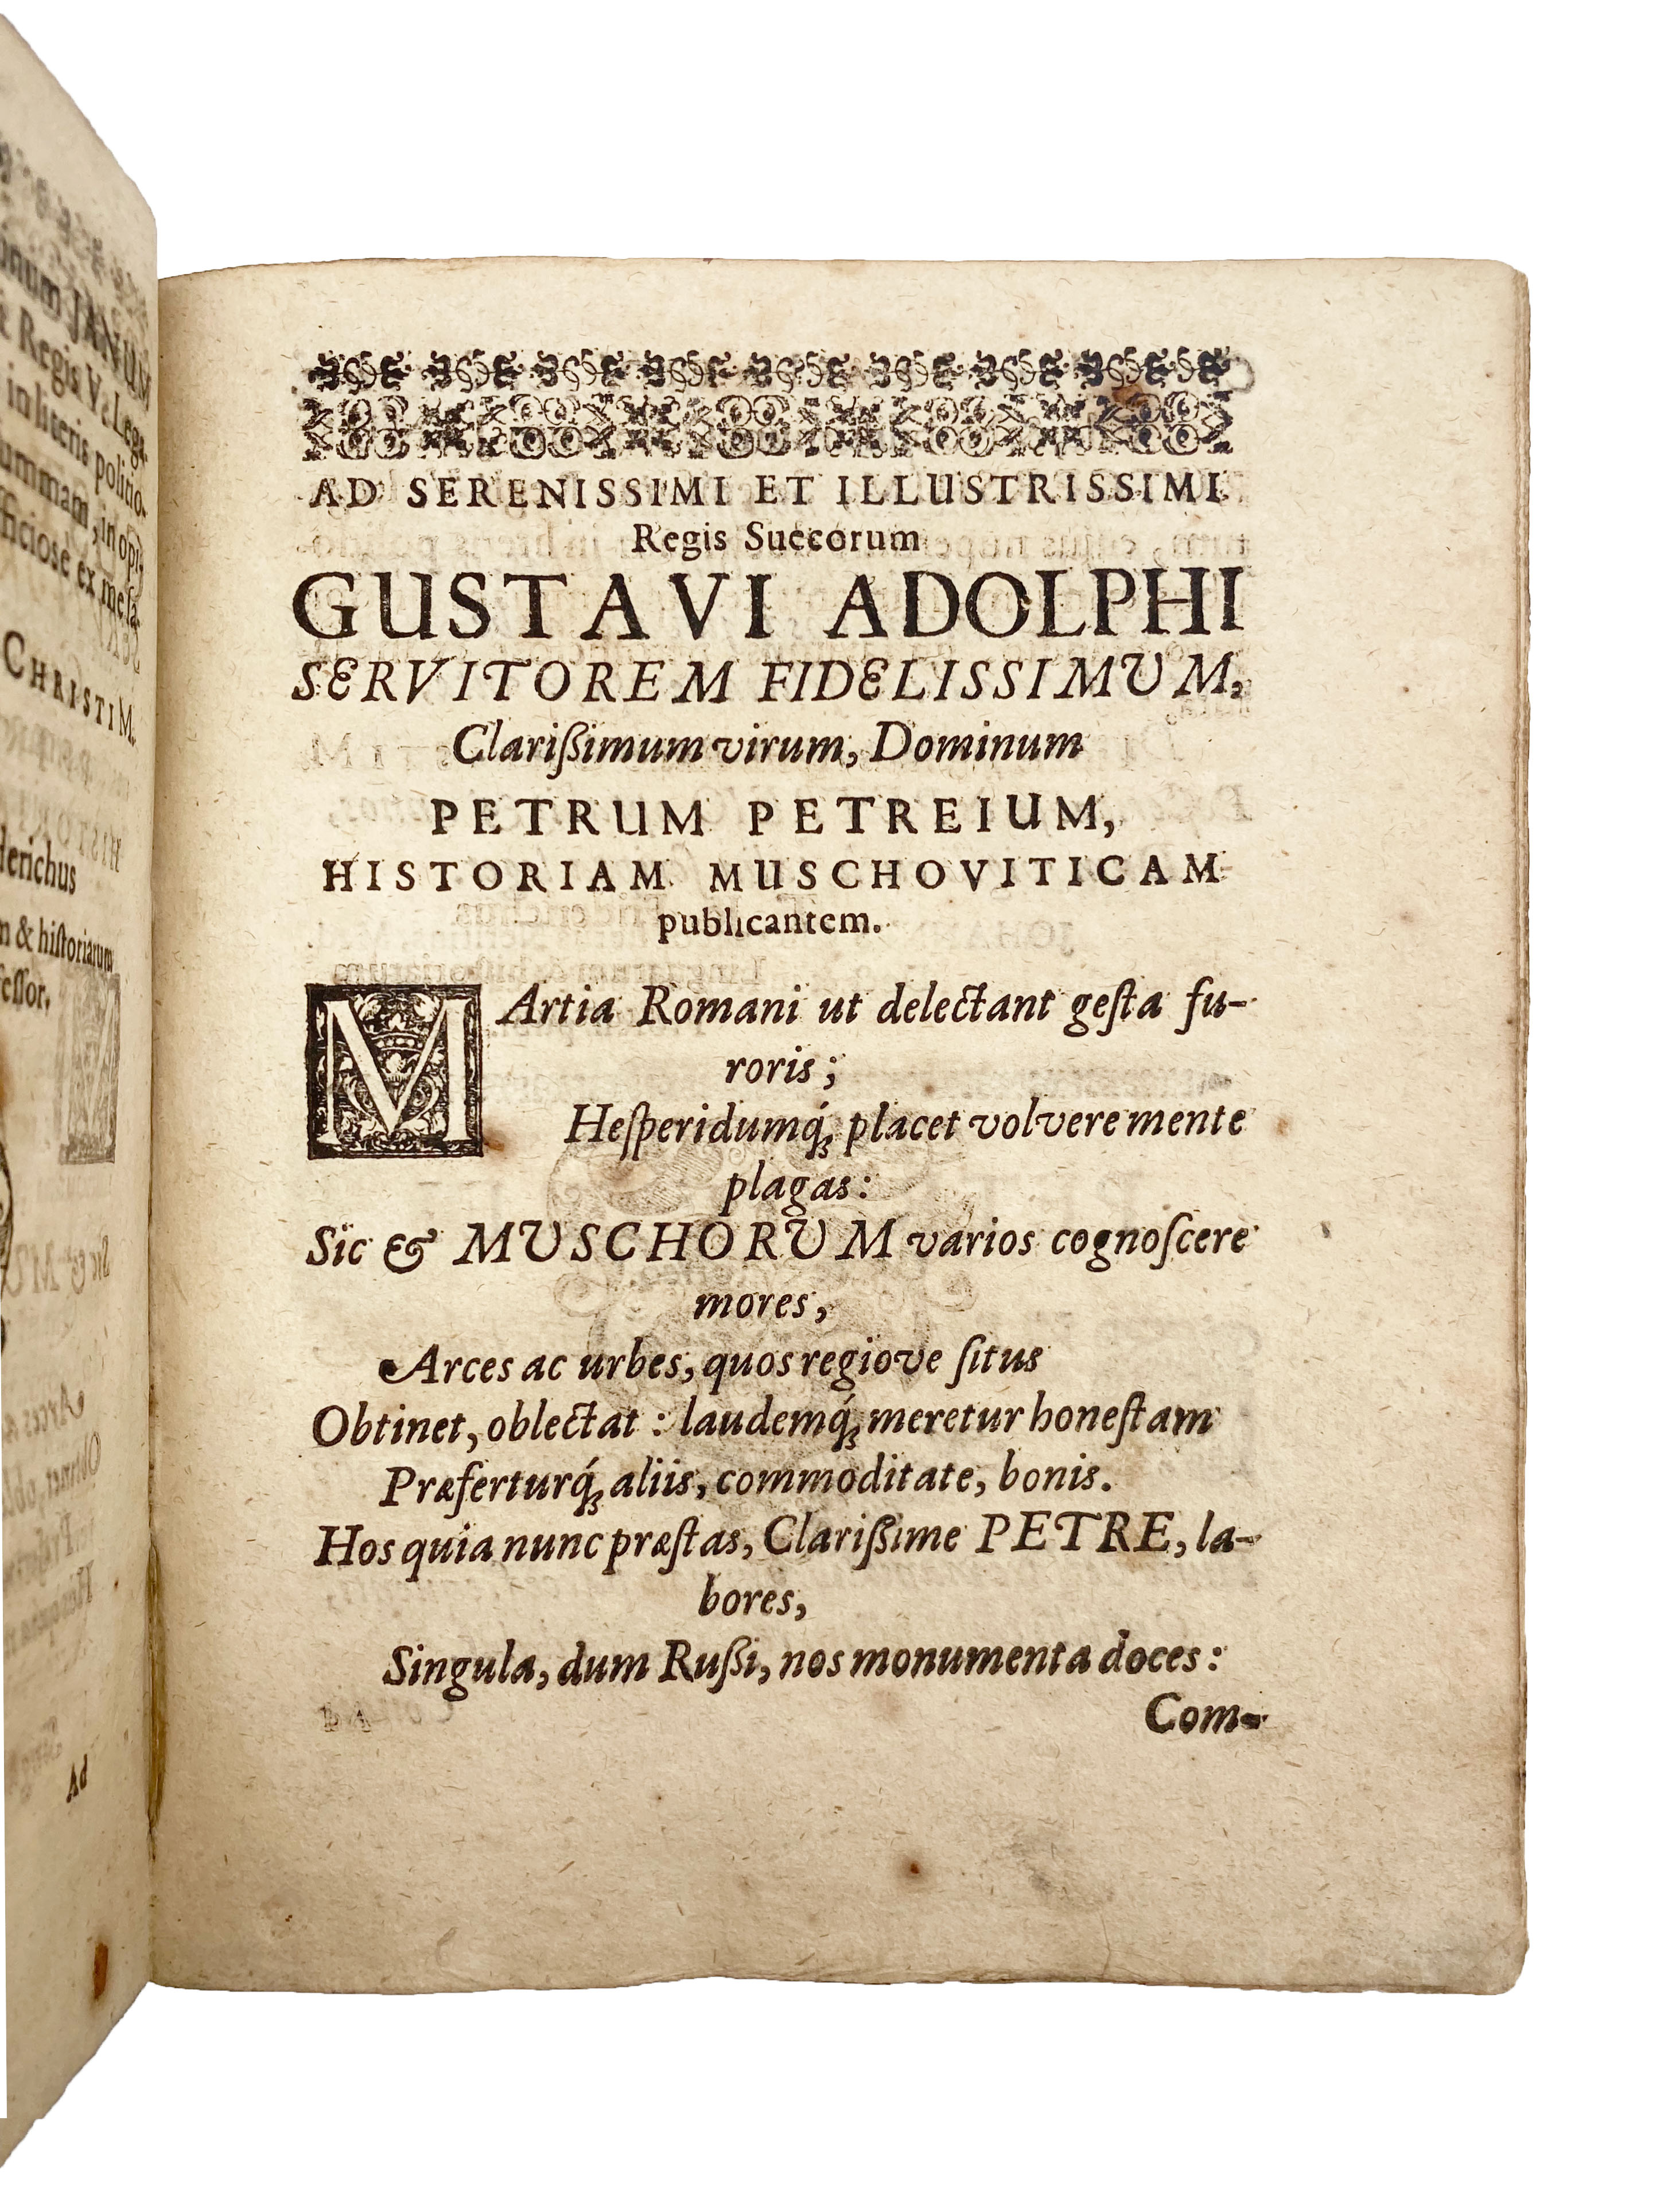 JANUM
Regis V. Legat
in literis politio-
ummam, in opi-
ficiose ex me sa-
CHRISTIM.
derichus
n & hiſtoriarum
feſſor.
Ad
AD SERENISSIMI ET ILLUSTRISSIMI
Regis Suecorum
GUSTAVI ADOLPHI
SERVITOREM FIDELISSIMUM,
Clariſſimum virum, Dominum
PETRUM PETREIUM,
HISTORIAM MUSCHOVITICAM
publicantem.
MArtia Romani ut delectant geſta fu-
roris;
Heſperidumq́; placet volvere mente
plagas:
Sic & MUSCHORUM varios cognoſcere
mores,
Arces ac urbes, quos regiove ſitus
Obtinet, oblectat : laudemq́; meretur honeſtam
Præferturq́; aliis, commoditate, bonis.
Hos quia nunc præſtas, Clariſſime PETRE, la-
bores,
Singula, dum Ruſſi, nos monumenta doces:
Com-